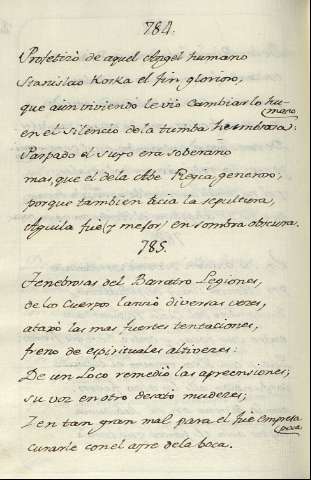 784.
Profetizò de aquel Angel humano
Stanislao Koska el fin glorioso,
que aun viviendo le viò cambiar lo hu-
mano,
en el silencio de la tumba hermbrosa:
Parpado el suyo era soberano
mas, que el de la Abe Regia generoso,
porque tambien àcia la sepultura,
Aguila fuè (y mejor) en sombra obscura.
785.
Tenebrosas del Baratro Legiones,
de los Cuerpos lanzò diversas vezes,
ataxò las mas fuertes tentaciones,
freno de espirituales altivezes:
De un Loco remediò las aprensiones,
su voz en otro desatò mudezes;
I en tan gran mal para el fuè empresa
poca
curarle con el ayre de la boca.